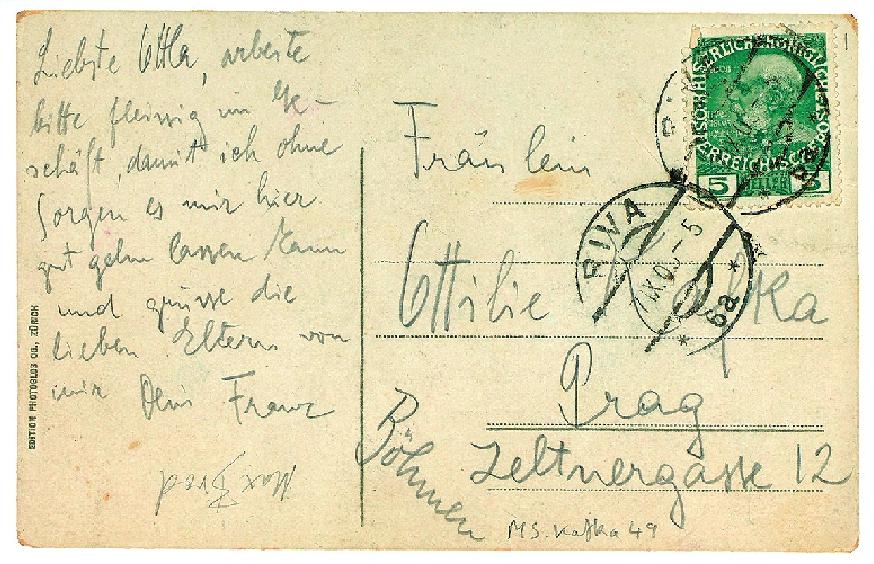 Liebste Ottla, arbeite
bitte fleissig im Ge-
schäft, damit ich ohne
Sorgen es mir hier
gut gehn lassen kann
und grüsse die
lieben Eltern von
mir Dein Franz
Max Brod
EDITION PHOTOGLOB CO., ZÜRICH
Fräulein
Ottilie Kafka
Prag
Zeltnergasse 12
Böhmen
MS. Kafka 49
RIVA
IX 0 - 5
* 6a *
5
HELLER
5
6a
1